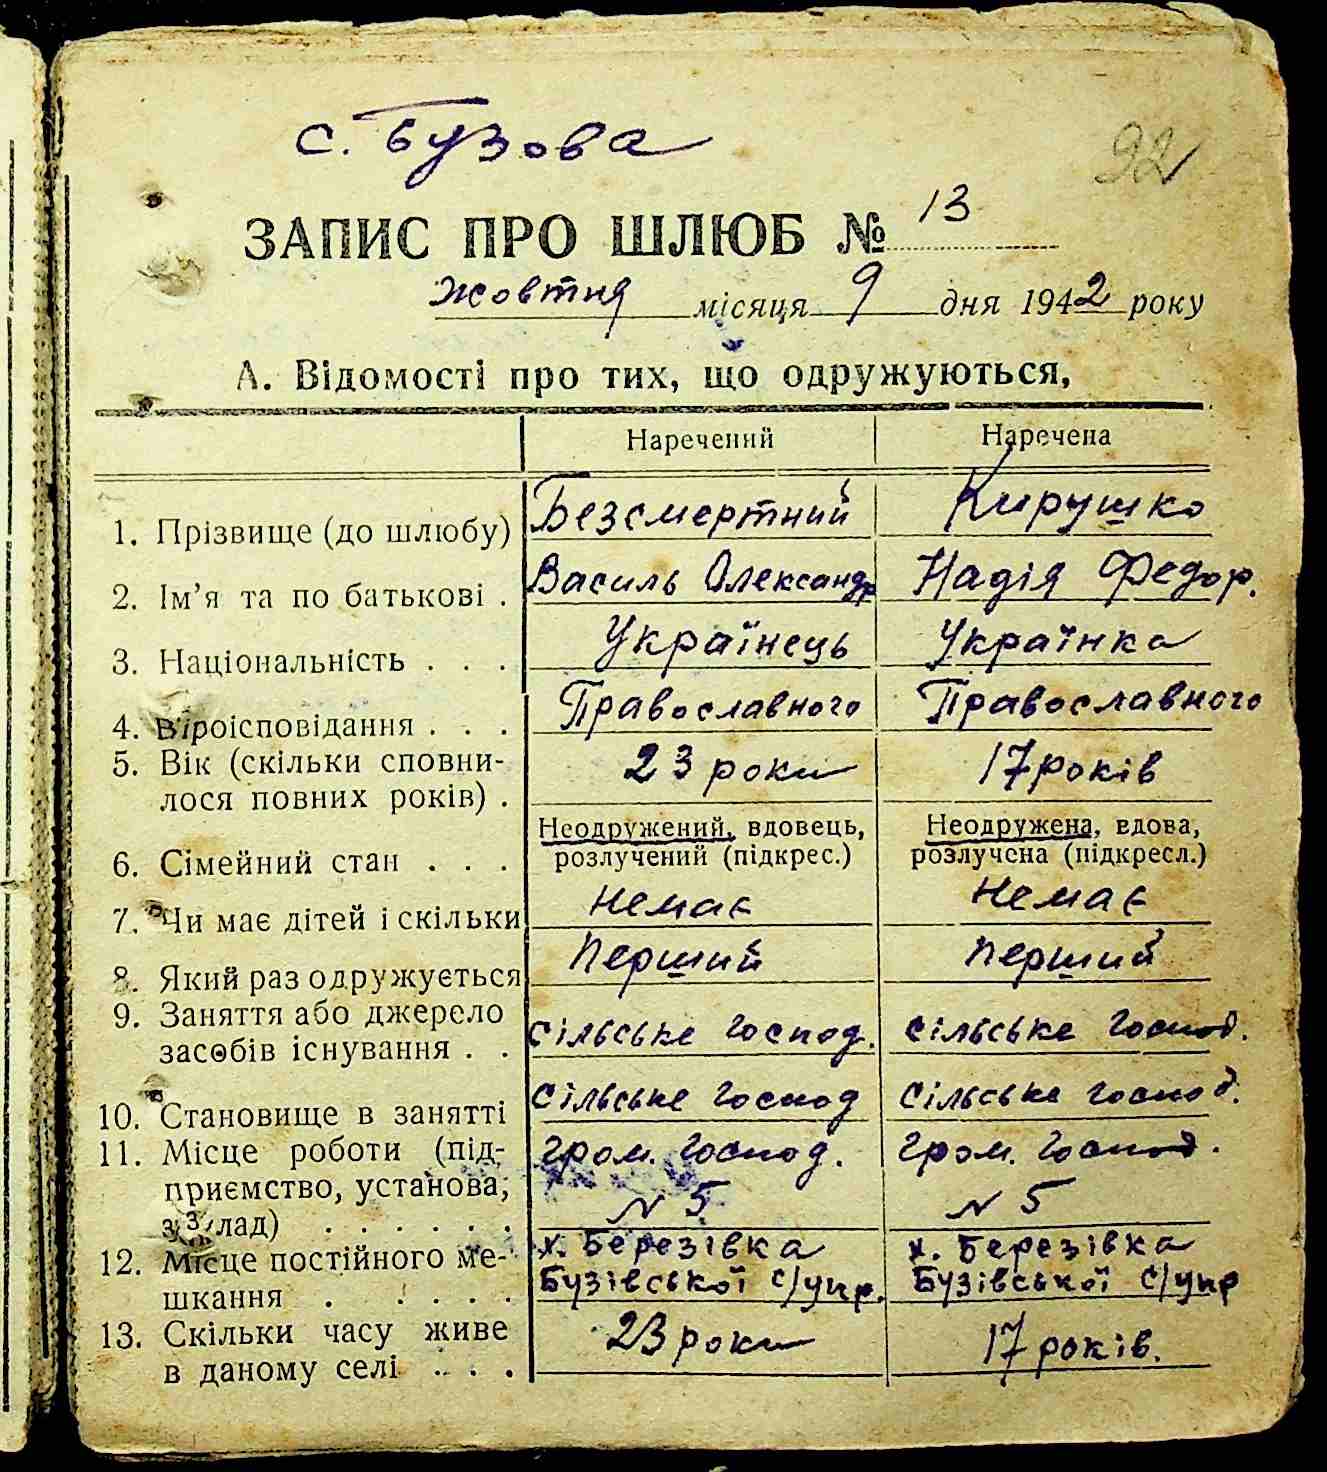 с. Бузова
92
ЗАПИС ПРО ШЛЮБ № 13
жовтня місяця 9 дня 1942 року
А. Відомості про тих, що одружуються,
Наречений Наречена
1. Прізвище (до шлюбу) Безсмертний Кирушко
2. Ім'я та по батькові . Василь Олександр Надія Федор.
3. Національність . . . Українець Українка
4. Віроісповідання . . . Православного Православного
5. Вік (скільки сповни-
лося повних років) . 23 роки 17 років
6. Сімейний стан . . . Неодружений, вдовець, Неодружена, вдова,
розлучений (підкрес.) розлучена (підкресл.)
7. Чи має дітей і скільки Немає Немає
8. Який раз одружується Перший Перший
9. Заняття або джерело
засобів існування . . Сільське господ. Сільське господ.
10. Становище в занятті Сільське господ Сільське господ.
11. Місце роботи (під- гром. господ. гром. господ.
приємство, установа,
заклад) . . . . . . N 5 N 5
12. Місце постійного ме- х. Березівка х. Березівка
шкання . . . . . Бузівської с/упр. Бузівської с/упр
13. Скільки часу живе 23 роки 17 років.
в даному селі . . .